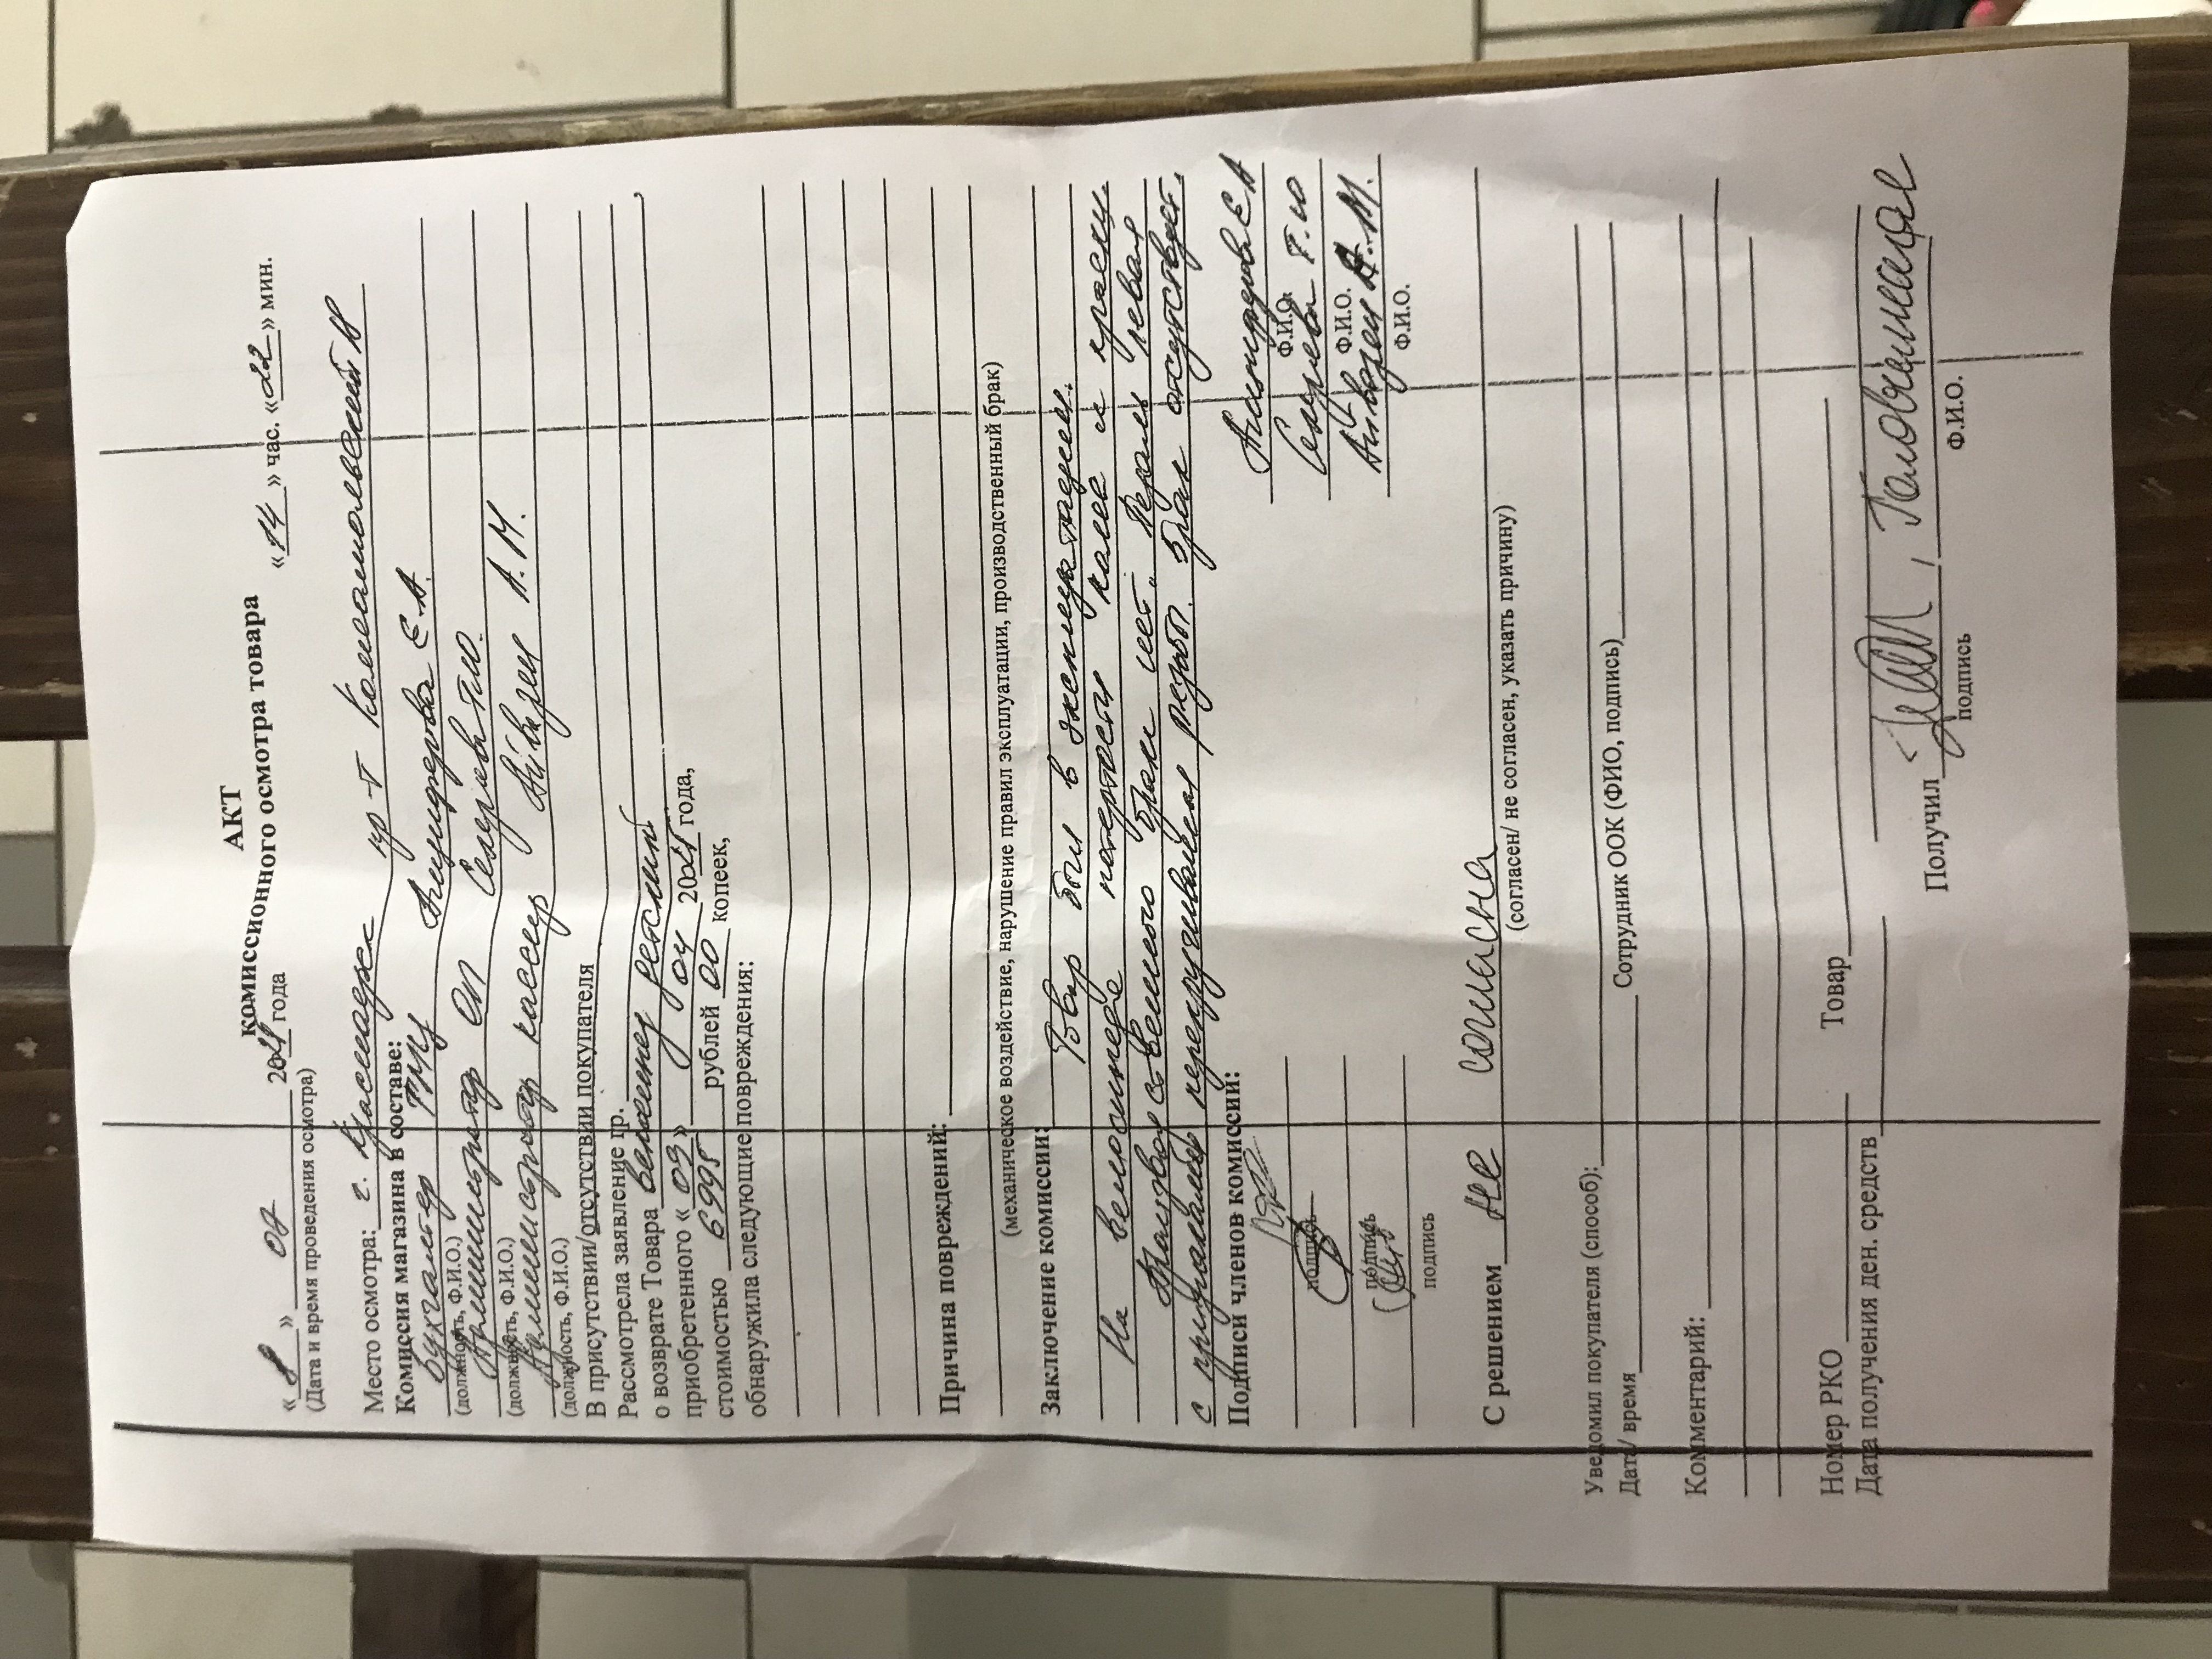 АКТ
комиссионного осмотра товара
«8» 07 2021 года «14» час. «22» мин.
(Дата и время проведения осмотра)
Место осмотра: г. пр-т
Комиссия магазина в составе:
бухгалтер ТМЦ Е.А.
(должность, Ф.И.О.)
Администратор Т.Ю.
(должность, Ф.И.О.)
Администратор кассир Айвазян А.М.
(должность, Ф.И.О.)
В присутствии/отсутствии покупателя
Рассмотрела заявление гр. ,
о возврате Товара детский
приобретенного « 03 » 04 2021 года,
стоимостью 6995 рублей 00 копеек,
обнаружила следующие повреждения:
Причина повреждений:
(механическое воздействие, нарушение правил эксплуатации, производственный брак)
Заключение комиссии: Товар был в эксплуатации.
На велосипеде потертости колес и краски.
Производственного брака нет. Педаль левая
с прокручивается резьба. Брак отсутствует.
Подписи членов комиссии:
Е А
подпись Ф.И.О.
Т.Ю
подпись Ф.И.О.
Айвазян А.М.
подпись Ф.И.О.
С решением не согласна
(согласен/ не согласен, указать причину)
Уведомил покупателя (способ):
Дата/ время Сотрудник ООК (ФИО, подпись)
Комментарий:
Номер РКО Товар
Дата получения ден. средств
Получил ,
подпись Ф.И.О.